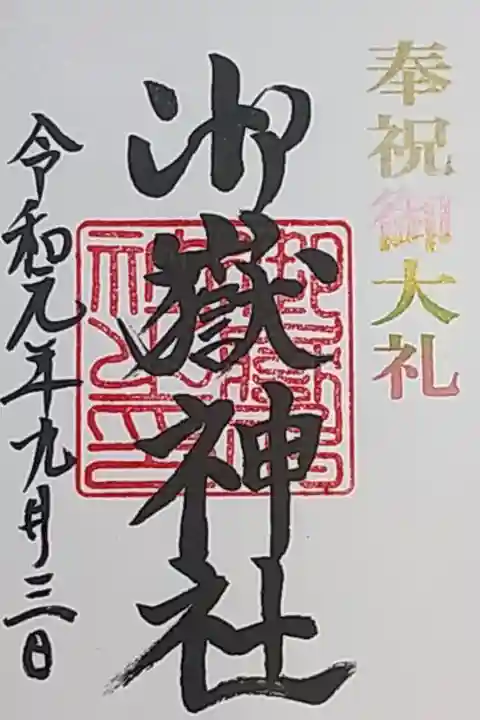 奉祝御大礼
御嶽神社
令和元年九月三日